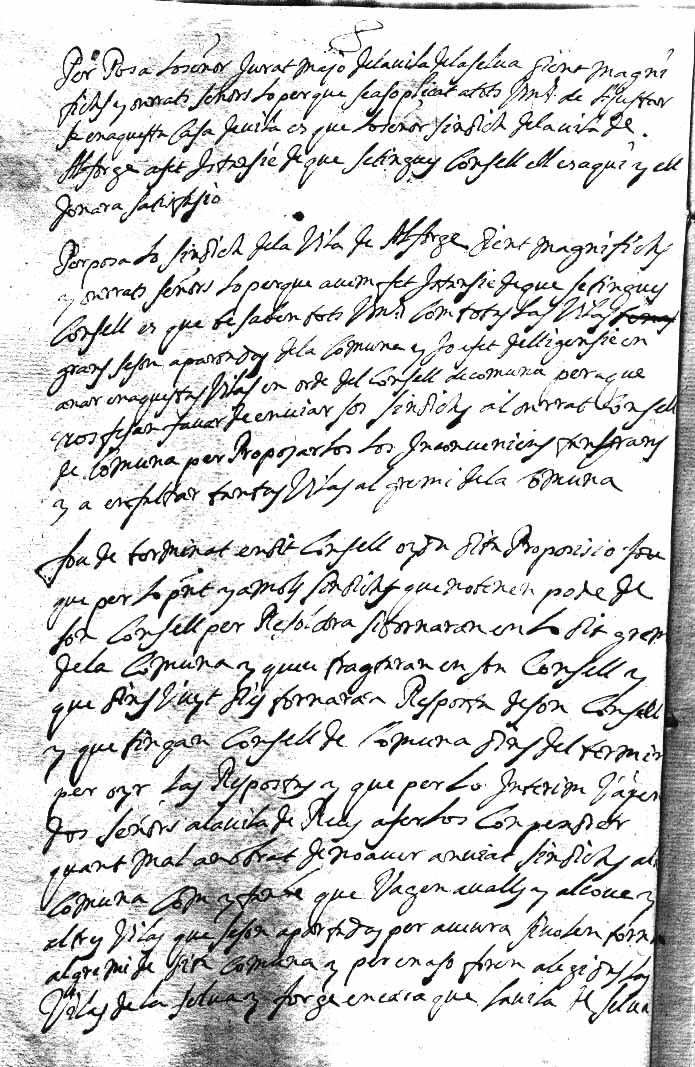 Per Posa lo señor Jurat major de la vila de la selva dient magni
fichs y onrrats señors lo per que se a soplicat a tots Vms de ajustar
se en aquesta Casa de vila es que lo señor sindich de la vila de
Alforge a fet Istansie de que se tingues Consell ell es aqui y ell
donara satisfasio
Per posa lo sindich de la Vila de Alforge dient magnifichs
y onrrats señors lo per que avem fet Istansie de que se tingues
Consell es que be saben tots Vms Com totas las Vilas
grans se son apartadas de la Comuna y Jo a fet deligensie en
anar en aquestas Vilas en orde del Consell de comuna per a que
nos fesan favor de enviar sos sindichs al onrrat Consell
de Comuna per Proposarlos los Inconvenients tan grans
y a en faltar tantas Vilas al gremi de la Comuna
fou determinat en dit Consell oyda dita Proposisio fou
que per lo pnt y a molts sindichs que no tenen poder de
son Consell per Resoldra si tornaran en lo dit grem
de la Comuna y que u tragtaran en son Consell y
que dins Vuyt dies tornaran Resposta de son Consell
y que tingan Consell de Comuna dins del termin
per oyr las Respostas y que per lo Interim Vagen
dos señors a la vila de Reus a ferlos Conpendrer
quant mal an obrat de no aver anviat sindichs a la
Comuna Com y tambe que Vagen a valls y alcover y
altres Vilas que se son apartadas per a veura si volen torna
al gremi de dita Comuna y per en aso foren alegidas las
Vilas de la selva y forge encara que la vila de selva